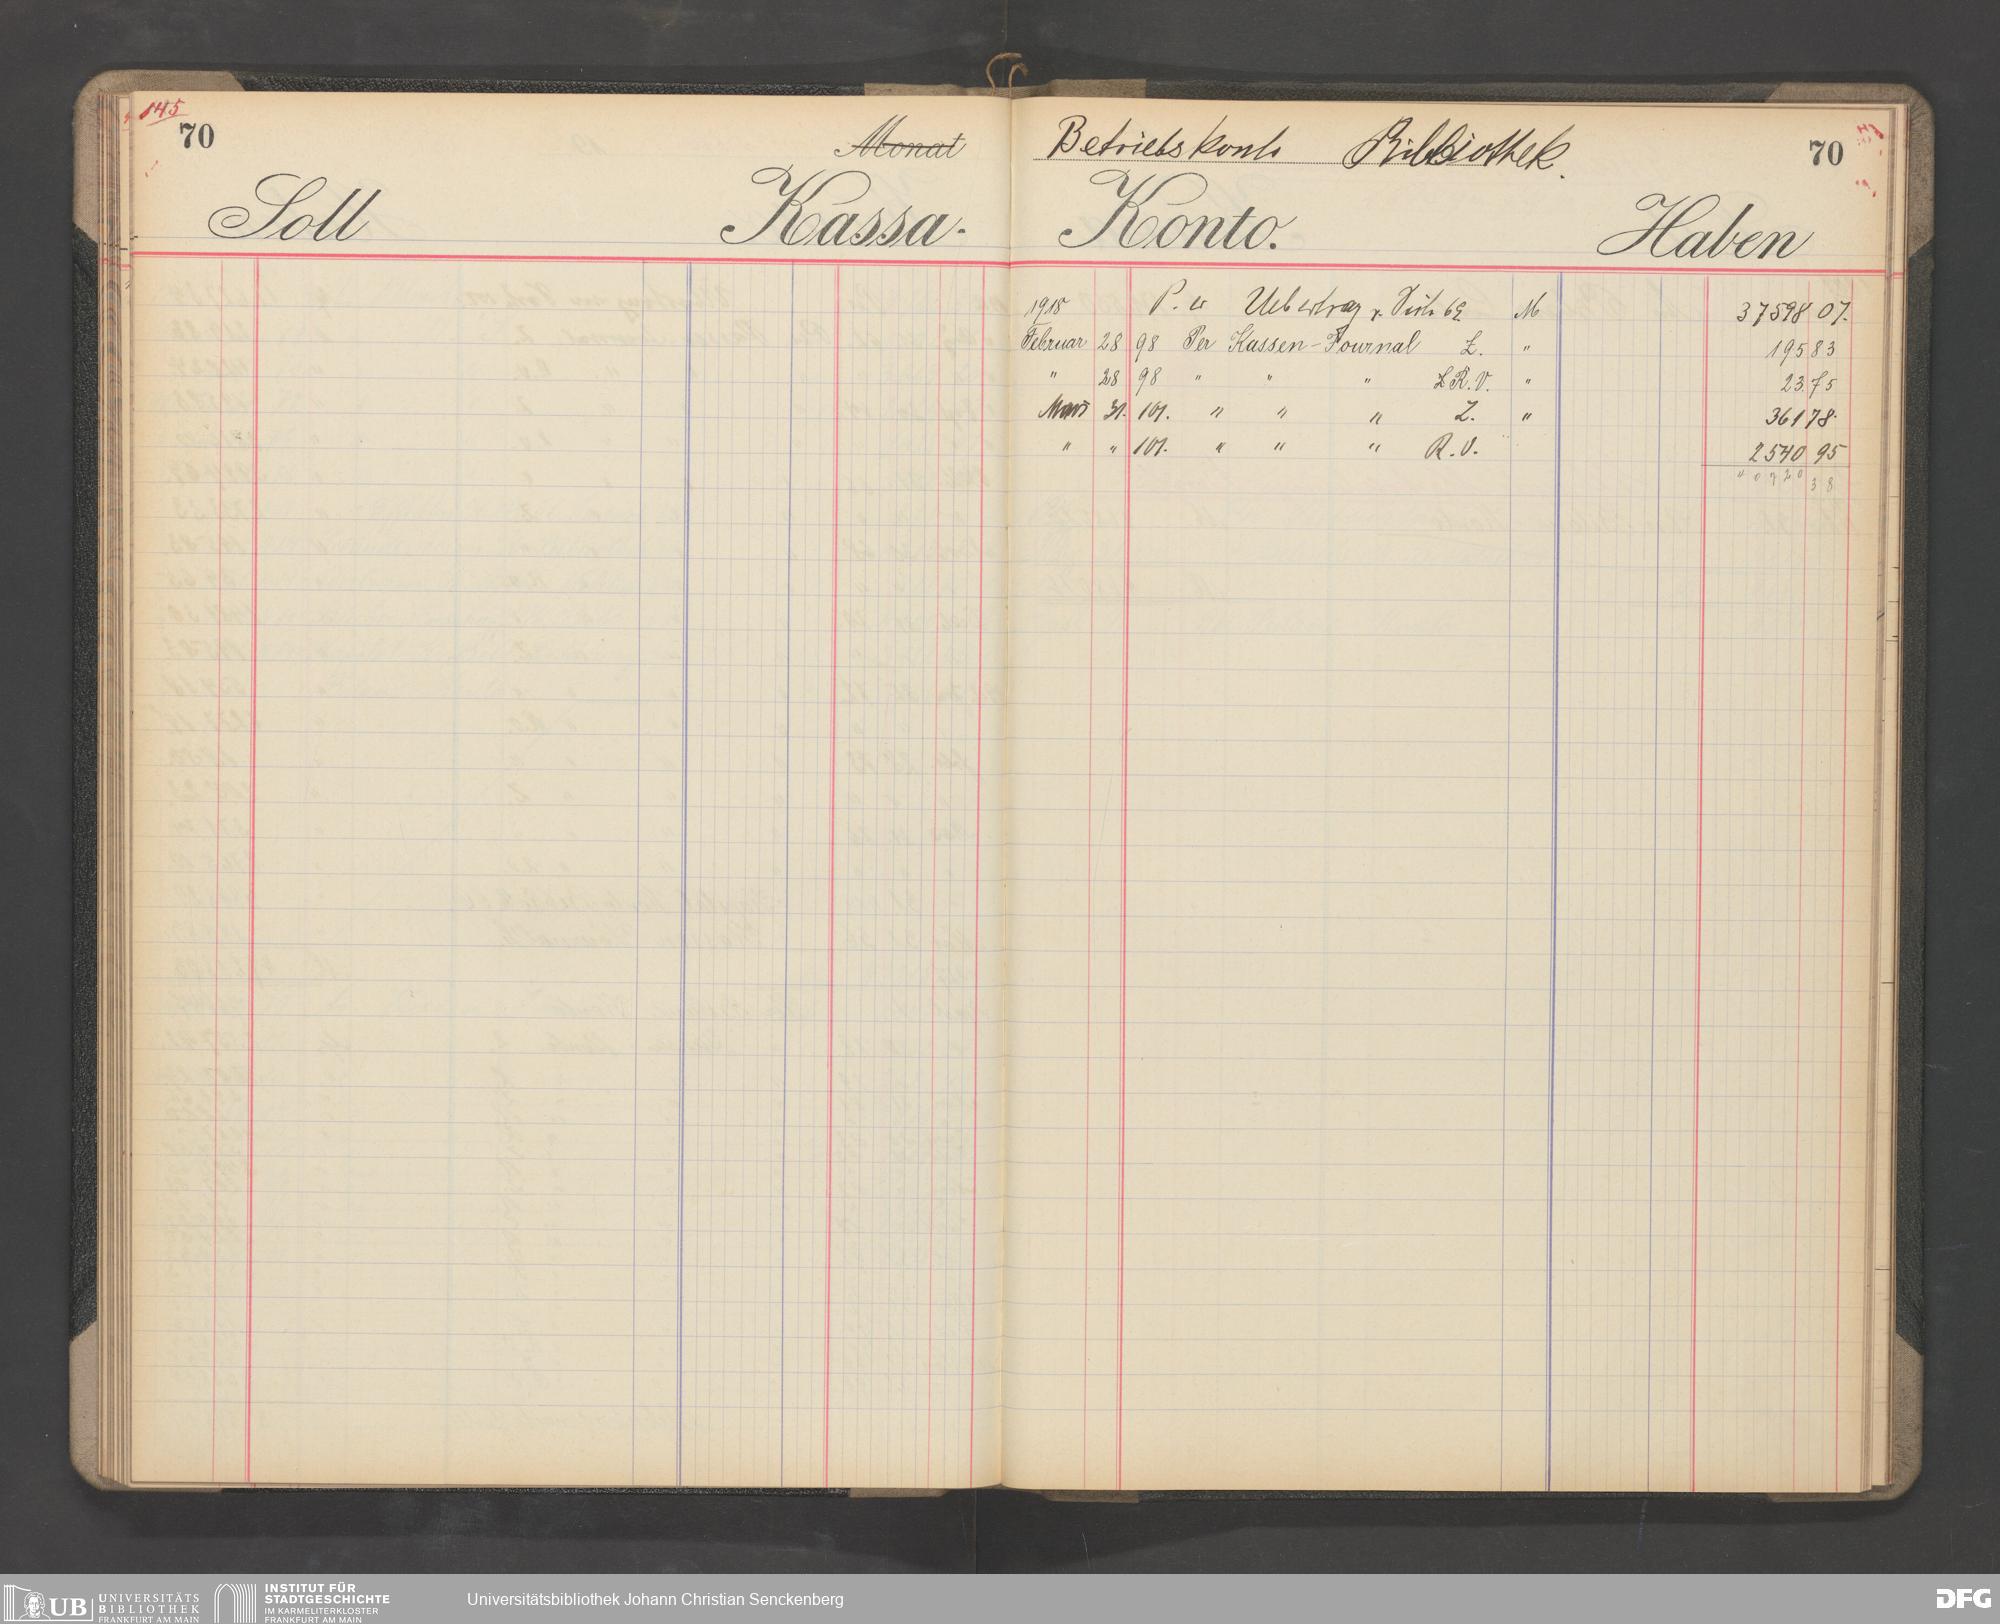 145
70
Monat
Betriebskonto Bibliothek.
70
Soll
Kassa-
Konto.
Haben
1918 Per Uebertrag v. Seite 69 M 37598 07.
Februar 28 98 Per Kassen-Journal Z. " 195 83
" 28 98 " " " R.V. " 23.75
März 31. 101. " " " Z. " 361 78.
" " 101. " " " R.V. 2540 95
40720 38
UB UNIVERSITÄTS
BIBLIOTHEK
FRANKFURT AM MAIN
INSTITUT FÜR
STADTGESCHICHTE
IM KARMELITERKLOSTER
FRANKFURT AM MAIN
Universitätsbibliothek Johann Christian Senckenberg
DFG